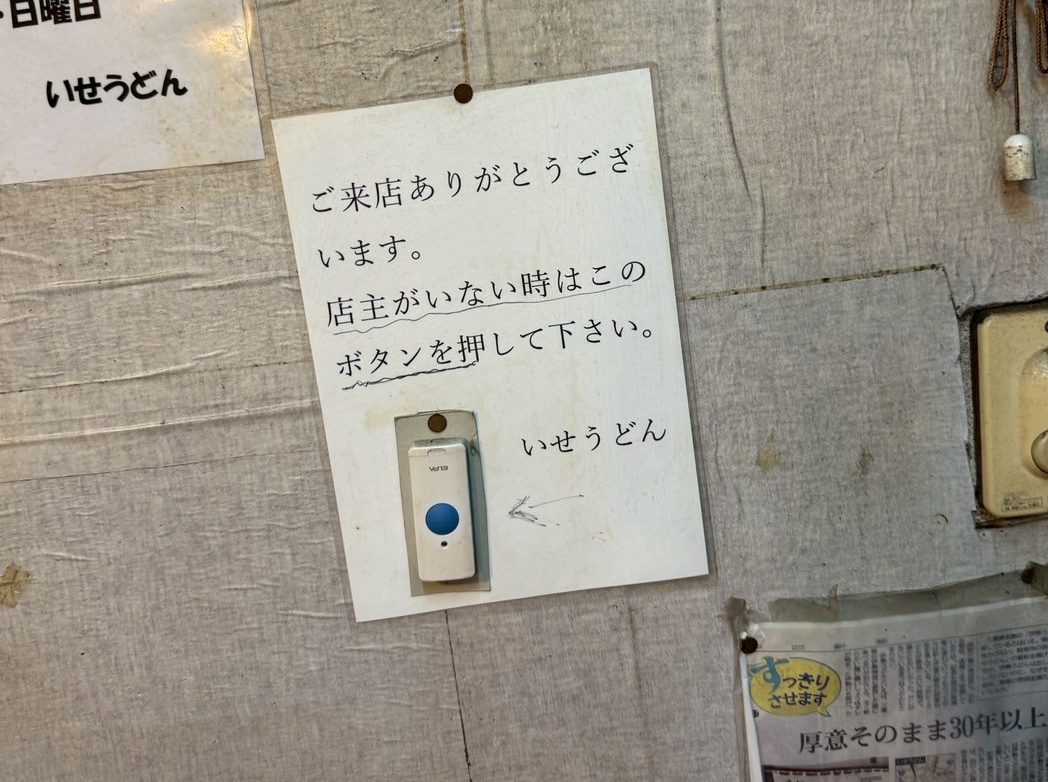 日曜日
いせうどん
ご来店ありがとうござ
います。
店主がいない時はこの
ボタンを押して下さい。
いせうどん
ELPA
すっきり
させます
厚意そのまま30年以上